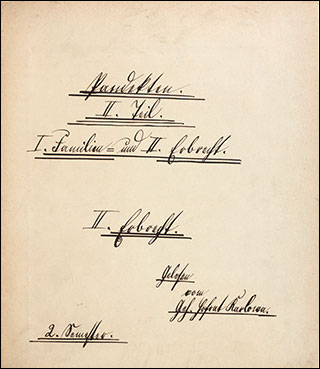 Pandekten.
II. Teil.
I. Familien= und II. Erbrecht.
II. Erbrecht.
Gelesen
vom
Geh. Hofrat Karlowa.
2. Semester.